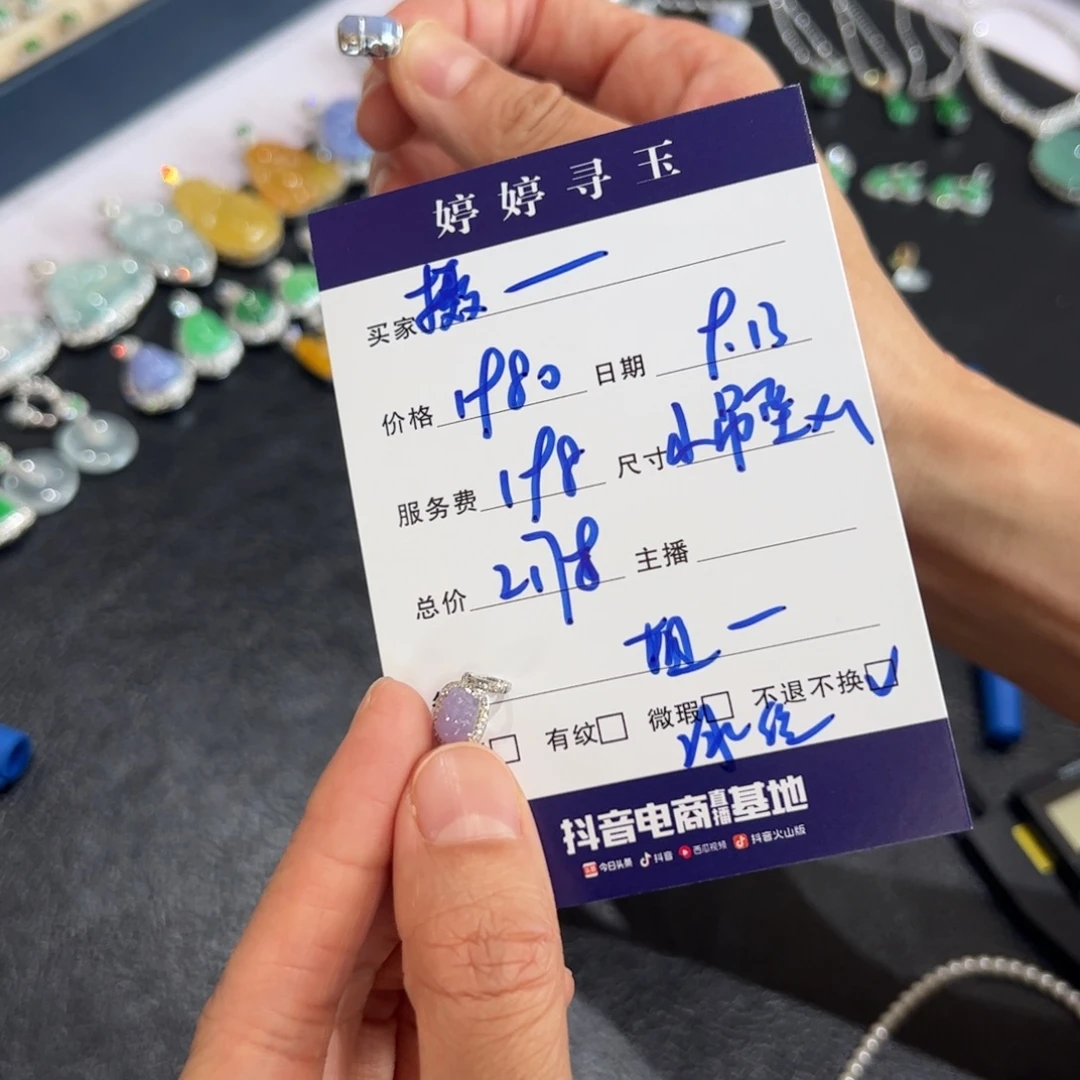 婷婷寻玉
买家 摄一
价格 1980 日期 9.13
服务费 198 尺寸 小吊坠
总价 2178 主播
姐一
有纹□ 微瑕□ 不退不换☑
抖音电商直播基地
今日头条 抖音 西瓜视频 抖音火山版